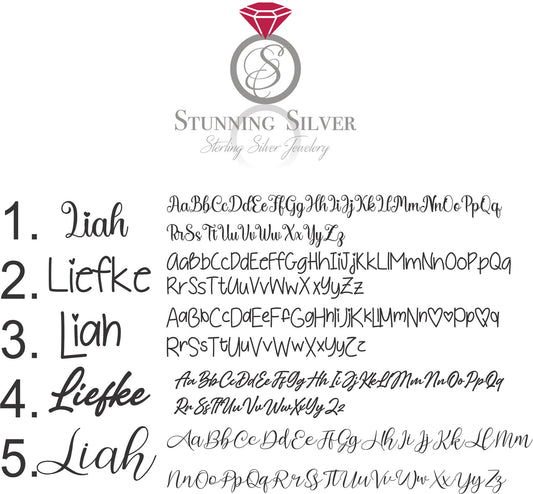 S
STUNNING SILVER
Sterling Silver Jewelery
1. Liah
AaBbCcDdEeFfGgHhIiJjKkLlMmNnOoPpQq
RrSsTtUuVvWwXxYyZz
2. Liefke
AaBbCcDdEeFfGgHhIiJjKkLlMmNnOoPpQq
RrSsTtUuVvWwXxYyZz
3. Liah
AaBbCcDdEeFfGgHhIiJjKkLlMmNn♡♡Pp♡q
RrSsTtUuVvWwXxYyZz
4. Liefke
AaBbCcDdEeFfGgHhIiJjKkLlMmNnOoPpQq
RrSsTtUuVvWwXxYyZz
5. Liah
AaBbCcDdEeFfGgHhIiJjKkLlMm
NnOoPpQqRrSsTtUuVvWwXxYyZz